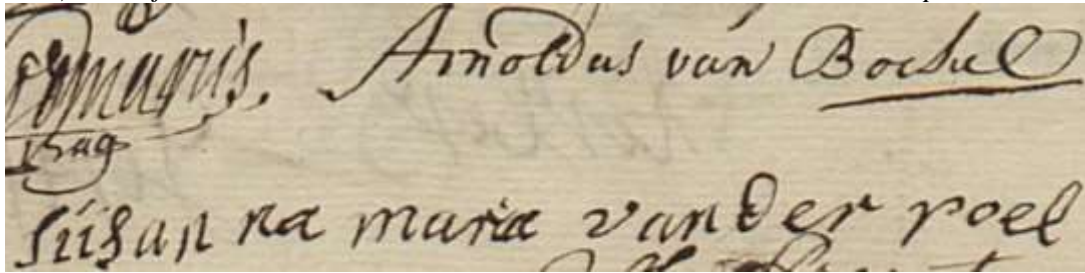 Arnoldus van Bochel
Súsan na maria van der poel